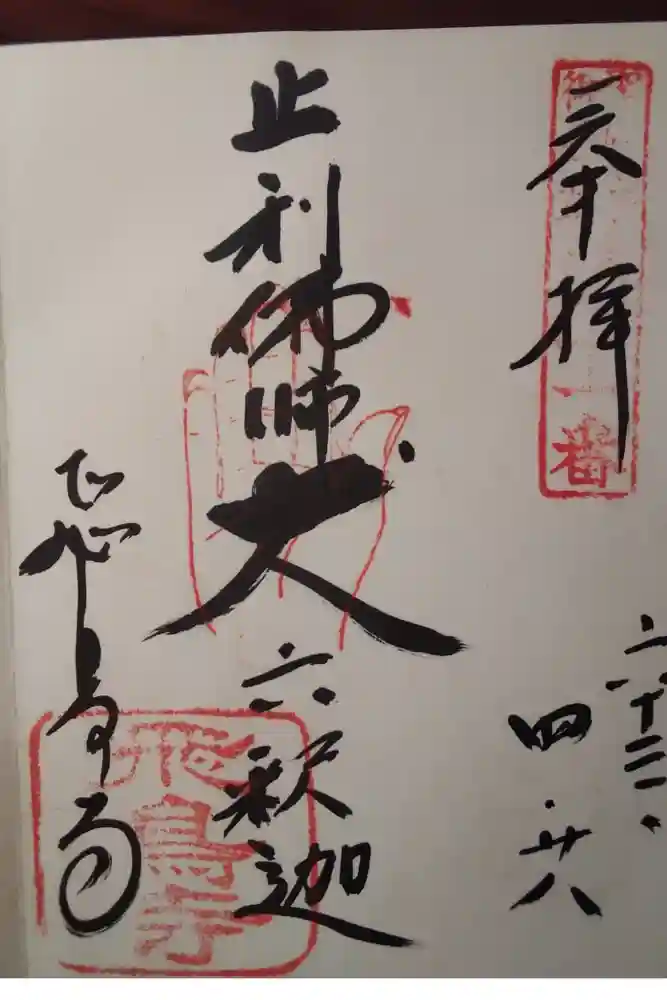 奉拝
四・廿八
止利佛師
丈六釈迦
飛鳥寺
番
飛鳥寺